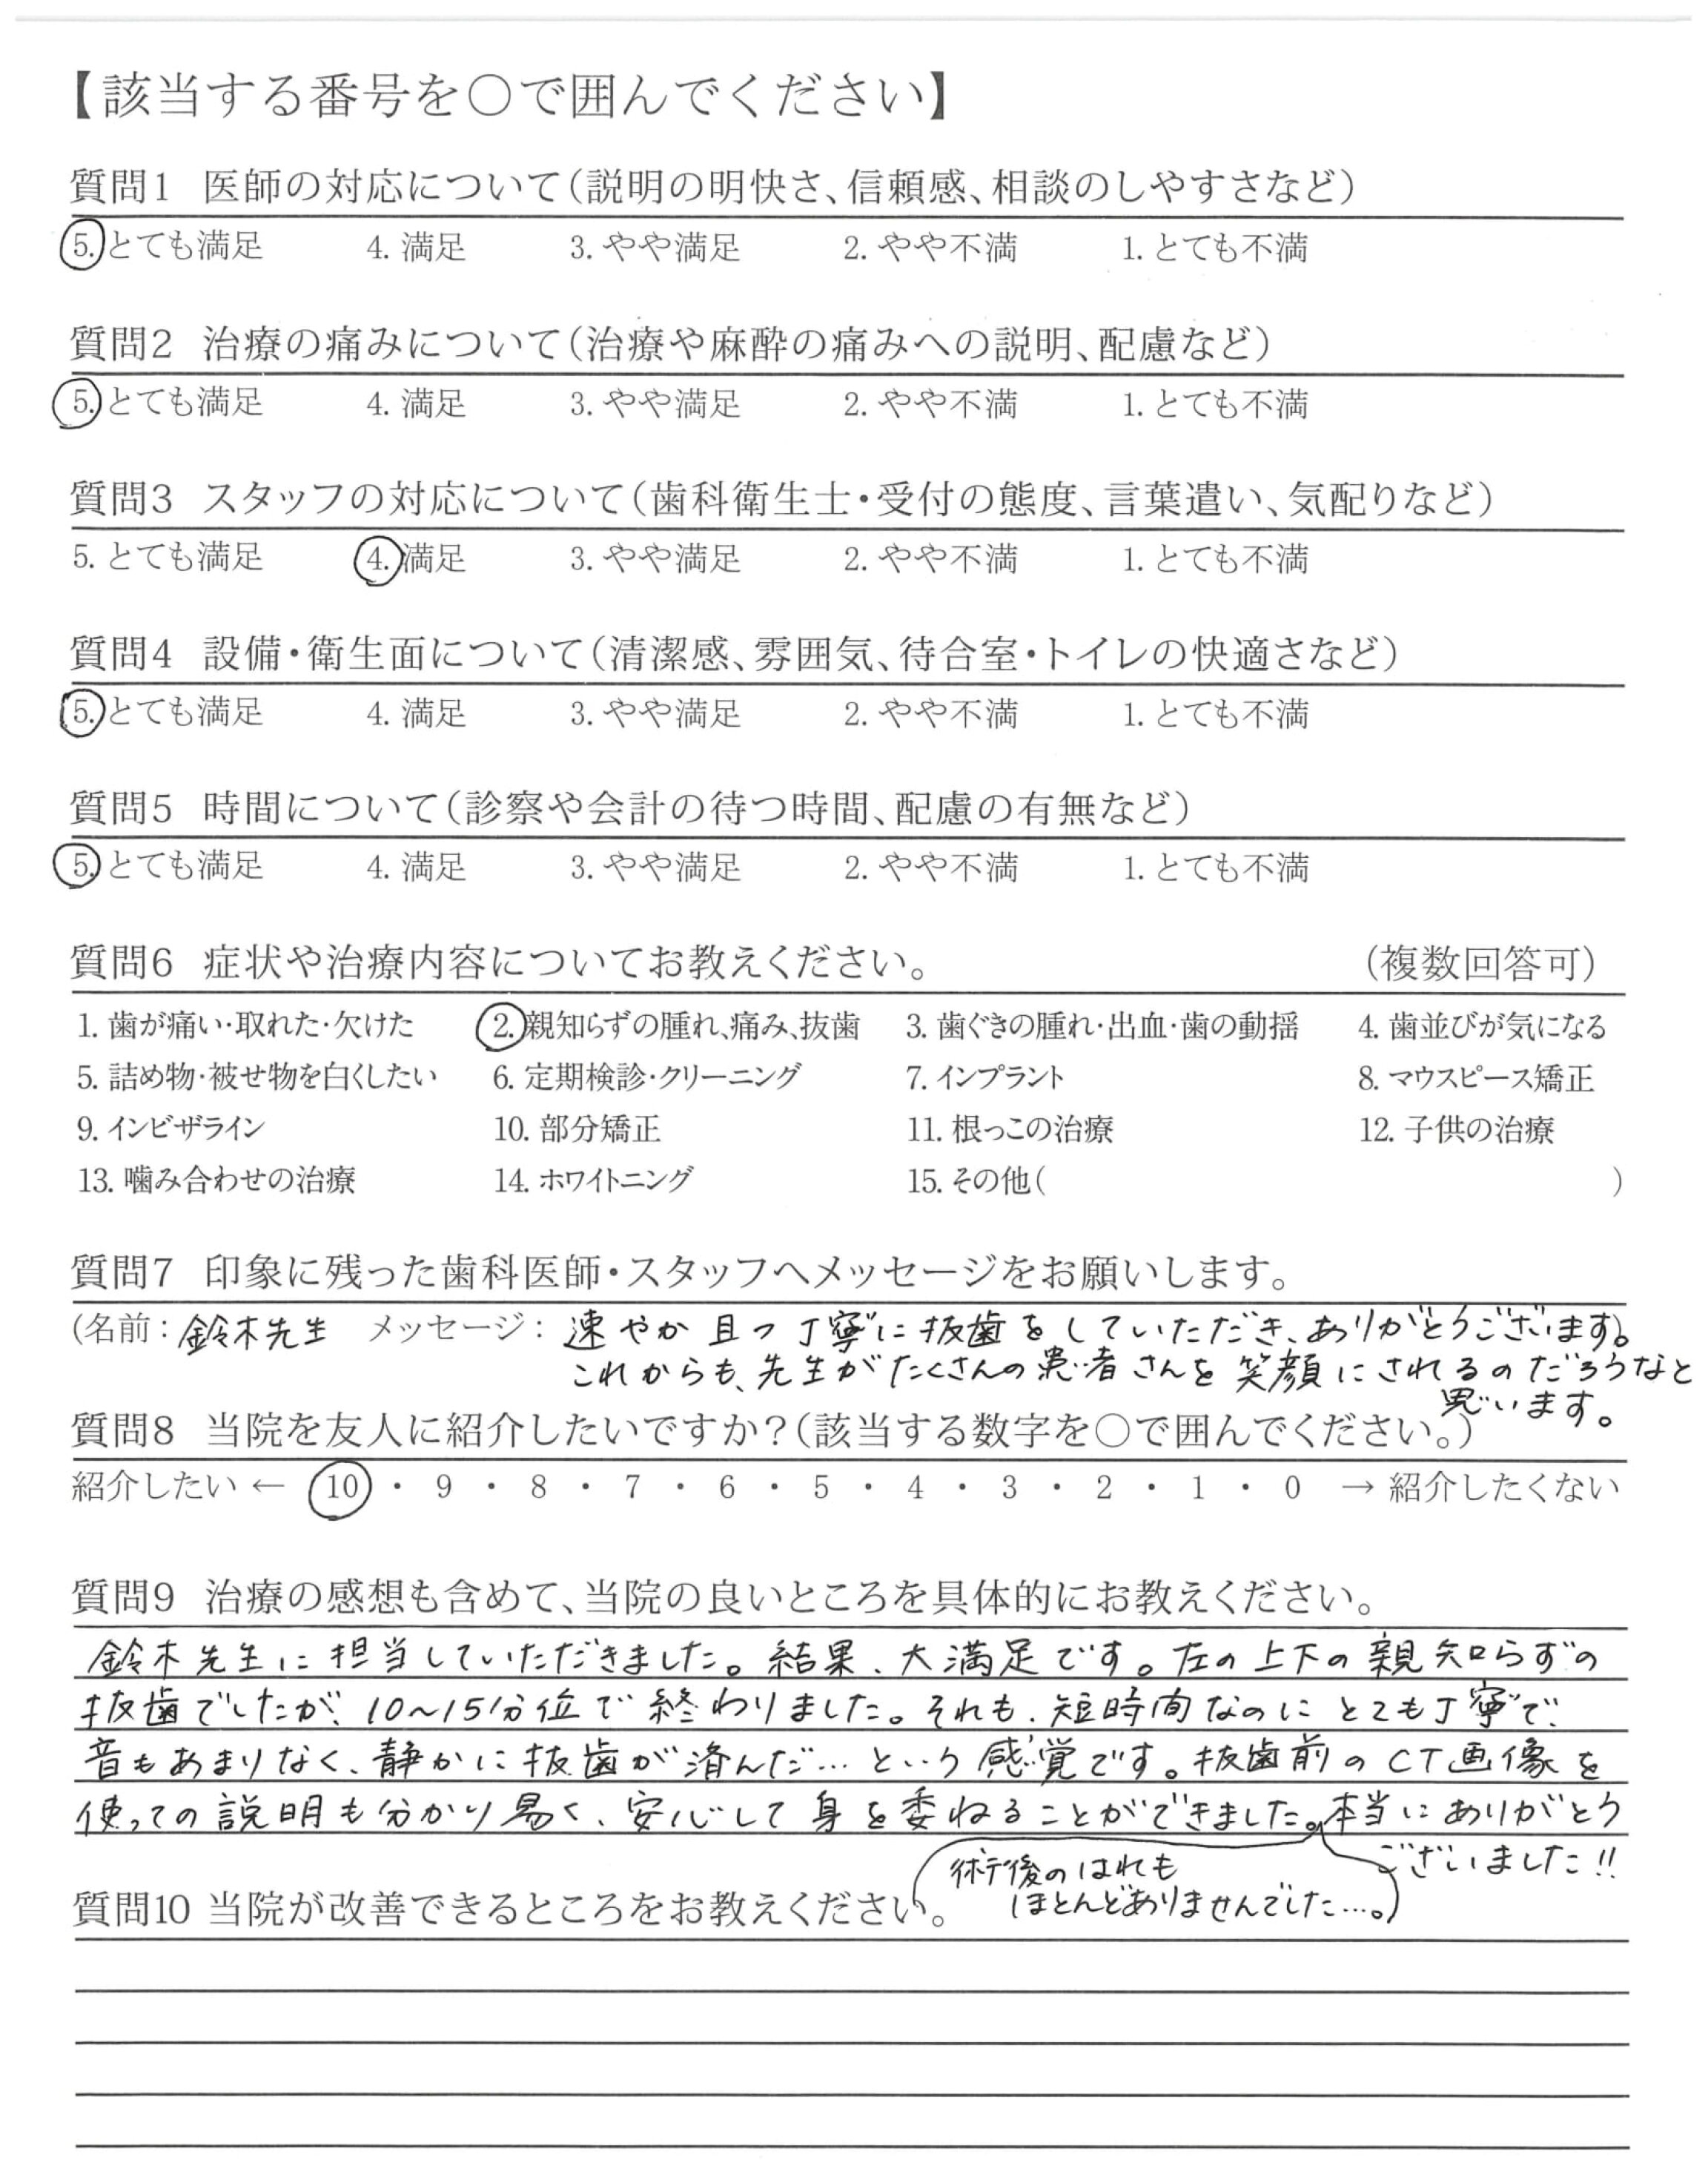 【該当する番号を○で囲んでください】
質問1 医師の対応について（説明の明快さ、信頼感、相談のしやすさなど）
5. とても満足 4. 満足 3. やや満足 2. やや不満 1. とても不満
質問2 治療の痛みについて（治療や麻酔の痛みへの説明、配慮など）
5. とても満足 4. 満足 3. やや満足 2. やや不満 1. とても不満
質問3 スタッフの対応について（歯科衛生士・受付の態度、言葉遣い、気配りなど）
5. とても満足 4. 満足 3. やや満足 2. やや不満 1. とても不満
質問4 設備・衛生面について（清潔感、雰囲気、待合室・トイレの快適さなど）
5. とても満足 4. 満足 3. やや満足 2. やや不満 1. とても不満
質問5 時間について（診察や会計の待つ時間、配慮の有無など）
5. とても満足 4. 満足 3. やや満足 2. やや不満 1. とても不満
質問6 症状や治療内容についてお教えください。 （複数回答可）
1. 歯が痛い・取れた・欠けた 2. 親知らずの腫れ、痛み、抜歯 3. 歯ぐきの腫れ・出血・歯の動揺 4. 歯並びが気になる
5. 詰め物・被せ物を白くしたい 6. 定期検診・クリーニング 7. インプラント 8. マウスピース矯正
9. インビザライン 10. 部分矯正 11. 根っこの治療 12. 子供の治療
13. 噛み合わせの治療 14. ホワイトニング 15. その他（ ）
質問7 印象に残った歯科医師・スタッフへメッセージをお願いします。
(名前：鈴木先生 メッセージ：速やか且つ丁寧に抜歯をしていただき、ありがとうございます。)
これからも、先生がたくさんの患者さんを笑顔にされるのだろうなと
思います。
質問8 当院を友人に紹介したいですか？（該当する数字を○で囲んでください。）
紹介したい ← 10 ・ 9 ・ 8 ・ 7 ・ 6 ・ 5 ・ 4 ・ 3 ・ 2 ・ 1 ・ 0 → 紹介したくない
質問9 治療の感想も含めて、当院の良いところを具体的にお教えください。
鈴木先生に担当していただきました。結果、大満足です。左の上下の親知らずの
抜歯でしたが、10〜15分位で終わりました。それも、短時間なのにとても丁寧で、
音もあまりなく、静かに抜歯が済んだ…という感覚です。抜歯前のCT画像を
使っての説明も分かり易く、安心して身を委ねることができました。本当にありがとう
ございました!!
術後のはれも
ほとんどありませんでした…。
質問10 当院が改善できるところをお教えください。